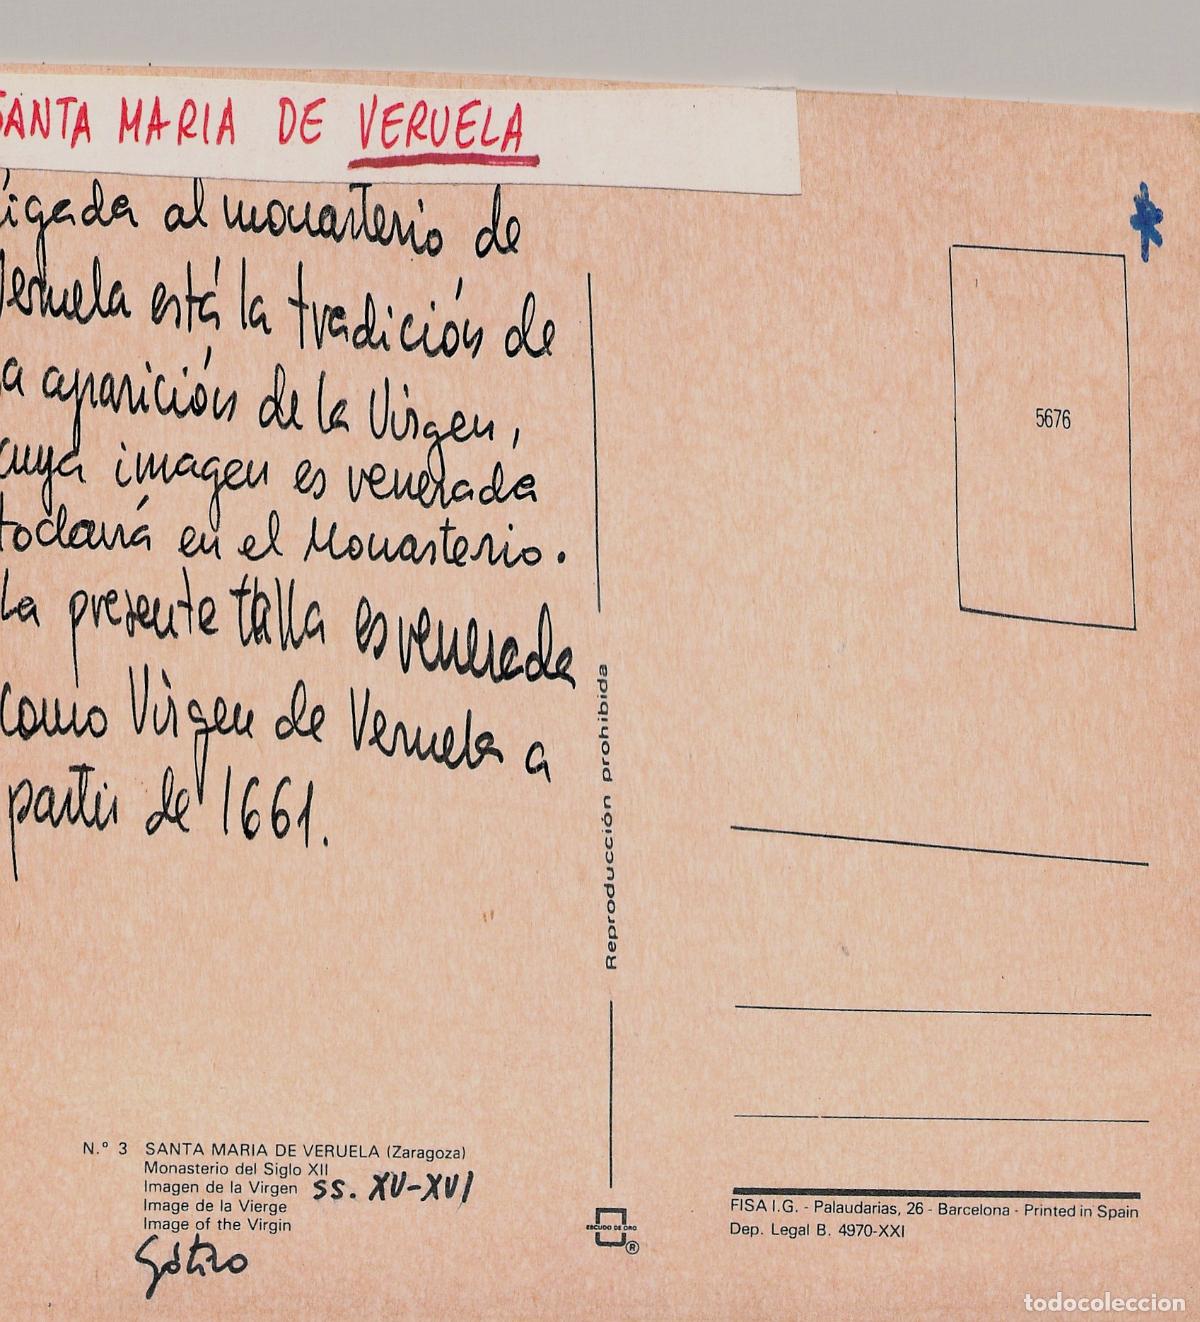 SANTA MARIA DE VERUELA
ligada al monasterio de
Veruela está la tradición de
la aparición de la Virgen,
cuya imagen es venerada
todavía en el Monasterio.
La presente talla es venerada
como Virgen de Veruela a
partir de 1661.
N.º 3 SANTA MARIA DE VERUELA (Zaragoza)
Monasterio del Siglo XII
Imagen de la Virgen SS. XV-XVI
Image de la Vierge
Image of the Virgin
Gótico
Reproducción prohibida
ESCUDO DE ORO
®
*
5676
FISA I.G. - Palaudarias, 26 - Barcelona - Printed in Spain
Dep. Legal B. 4970-XXI
todocoleccion